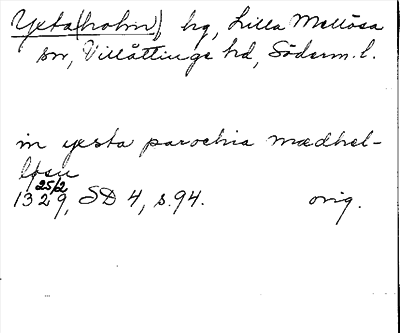 Yxta(holm), hg, Lilla Mellösa
sn, Villåttinge hd, Söderm. l.
in yxsta parochia mædhel-
løsu
25/2
1329, SD 4, s. 94. orig.